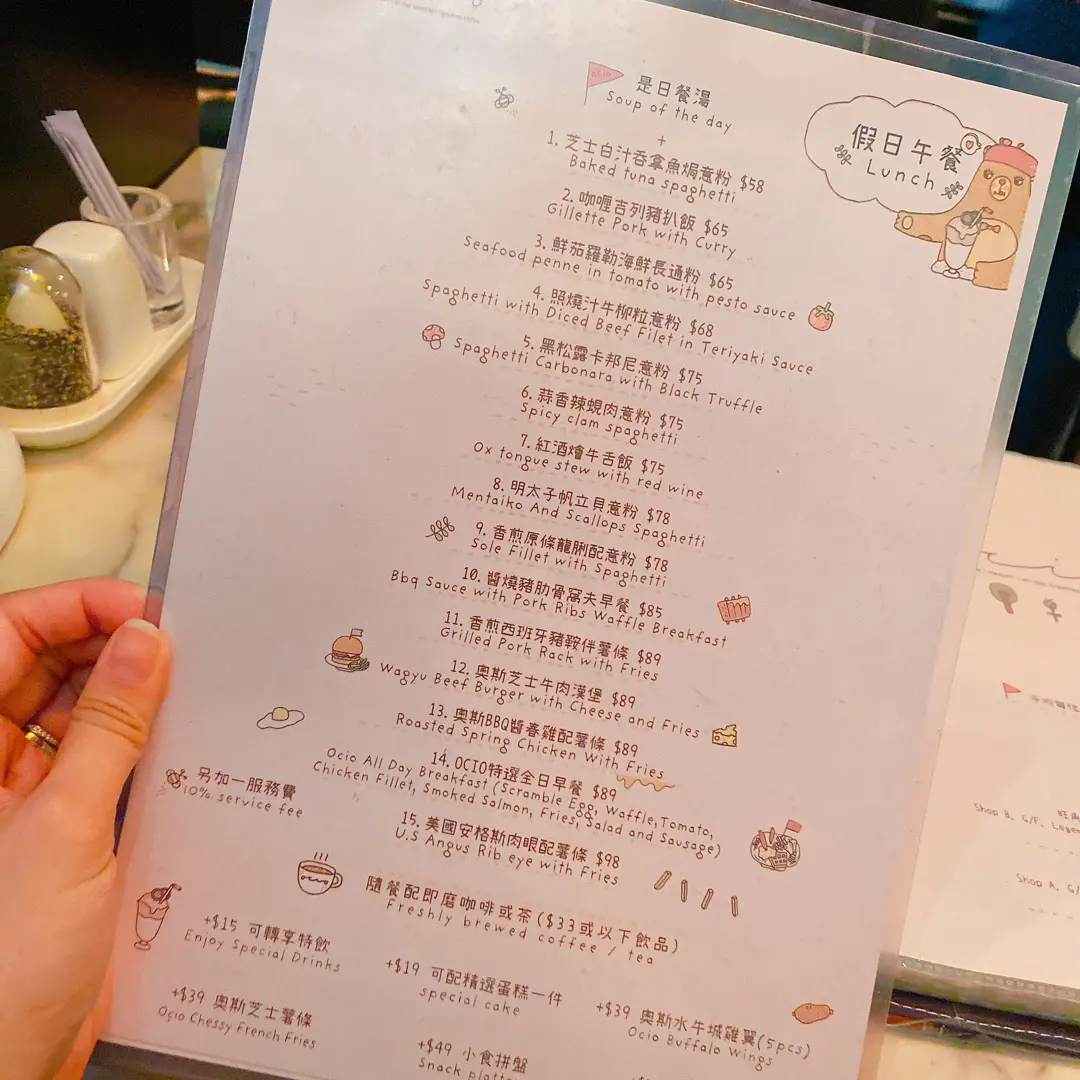 是日餐湯
Soup of the day
+
假日午餐
Lunch
1. 芝士白汁吞拿魚焗意粉 $58
Baked tuna spaghetti
2. 咖喱吉列豬扒飯 $65
Gillette Pork with Curry
3. 鮮茄羅勒海鮮長通粉 $65
Seafood penne in tomato with pesto sauce
4. 照燒汁牛柳粒意粉 $68
Spaghetti with Diced Beef Filet in Teriyaki Sauce
5. 黑松露卡邦尼意粉 $75
Spaghetti Carbonara with Black Truffle
6. 蒜香辣蜆肉意粉 $75
Spicy clam spaghetti
7. 紅酒燴牛舌飯 $75
Ox tongue stew with red wine
8. 明太子帆立貝意粉 $78
Mentaiko And Scallops Spaghetti
9. 香煎原條龍脷配意粉 $78
Sole Fillet with Spaghetti
10. 醬燒豬肋骨窩夫早餐 $85
Bbq Sauce with Pork Ribs Waffle Breakfast
11. 香煎西班牙豬鞍伴薯條 $89
Grilled Pork Rack with Fries
12. 奧斯芝士牛肉漢堡 $89
Wagyu Beef Burger with Cheese and Fries
13. 奧斯BBQ醬春雞配薯條 $89
Roasted Spring Chicken With Fries
14. OCIO特選全日早餐 $89
Ocio All Day Breakfast (Scramble Egg, Waffle,Tomato,
Chicken Fillet, Smoked Salmon, Fries, Salad and Sausage)
另加一服務費
10% service fee
15. 美國安格斯肉眼配薯條 $98
U.S Angus Rib eye with Fries
ocio
隨餐配即磨咖啡或茶($33或以下飲品)
Freshly brewed coffee / tea
+$15 可轉享特飲
Enjoy Special Drinks
+$19 可配精選蛋糕一件
special cake
+$39 奧斯水牛城雞翼(5pcs)
Ocio Buffalo Wings
+$39 奧斯芝士薯條
Ocio Chessy French Fries
+$49 小食拼盤
Snack
Shop B, G/F,
Shop A,